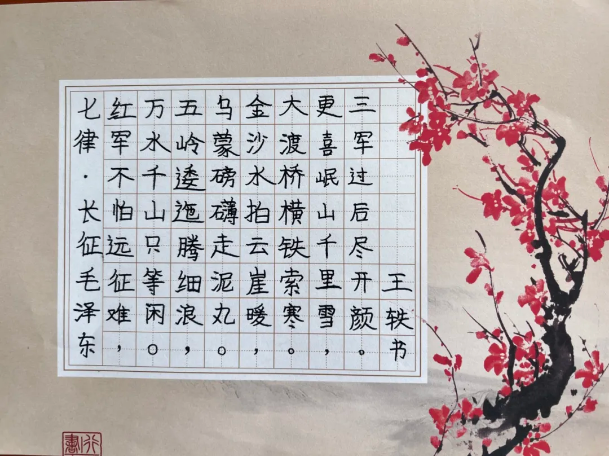 七律·长征毛泽东
红军不怕远征难，
万水千山只等闲。
五岭逶迤腾细浪，
乌蒙磅礴走泥丸。
金沙水拍云崖暖，
大渡桥横铁索寒。
更喜岷山千里雪，
三军过后尽开颜。
王轶书